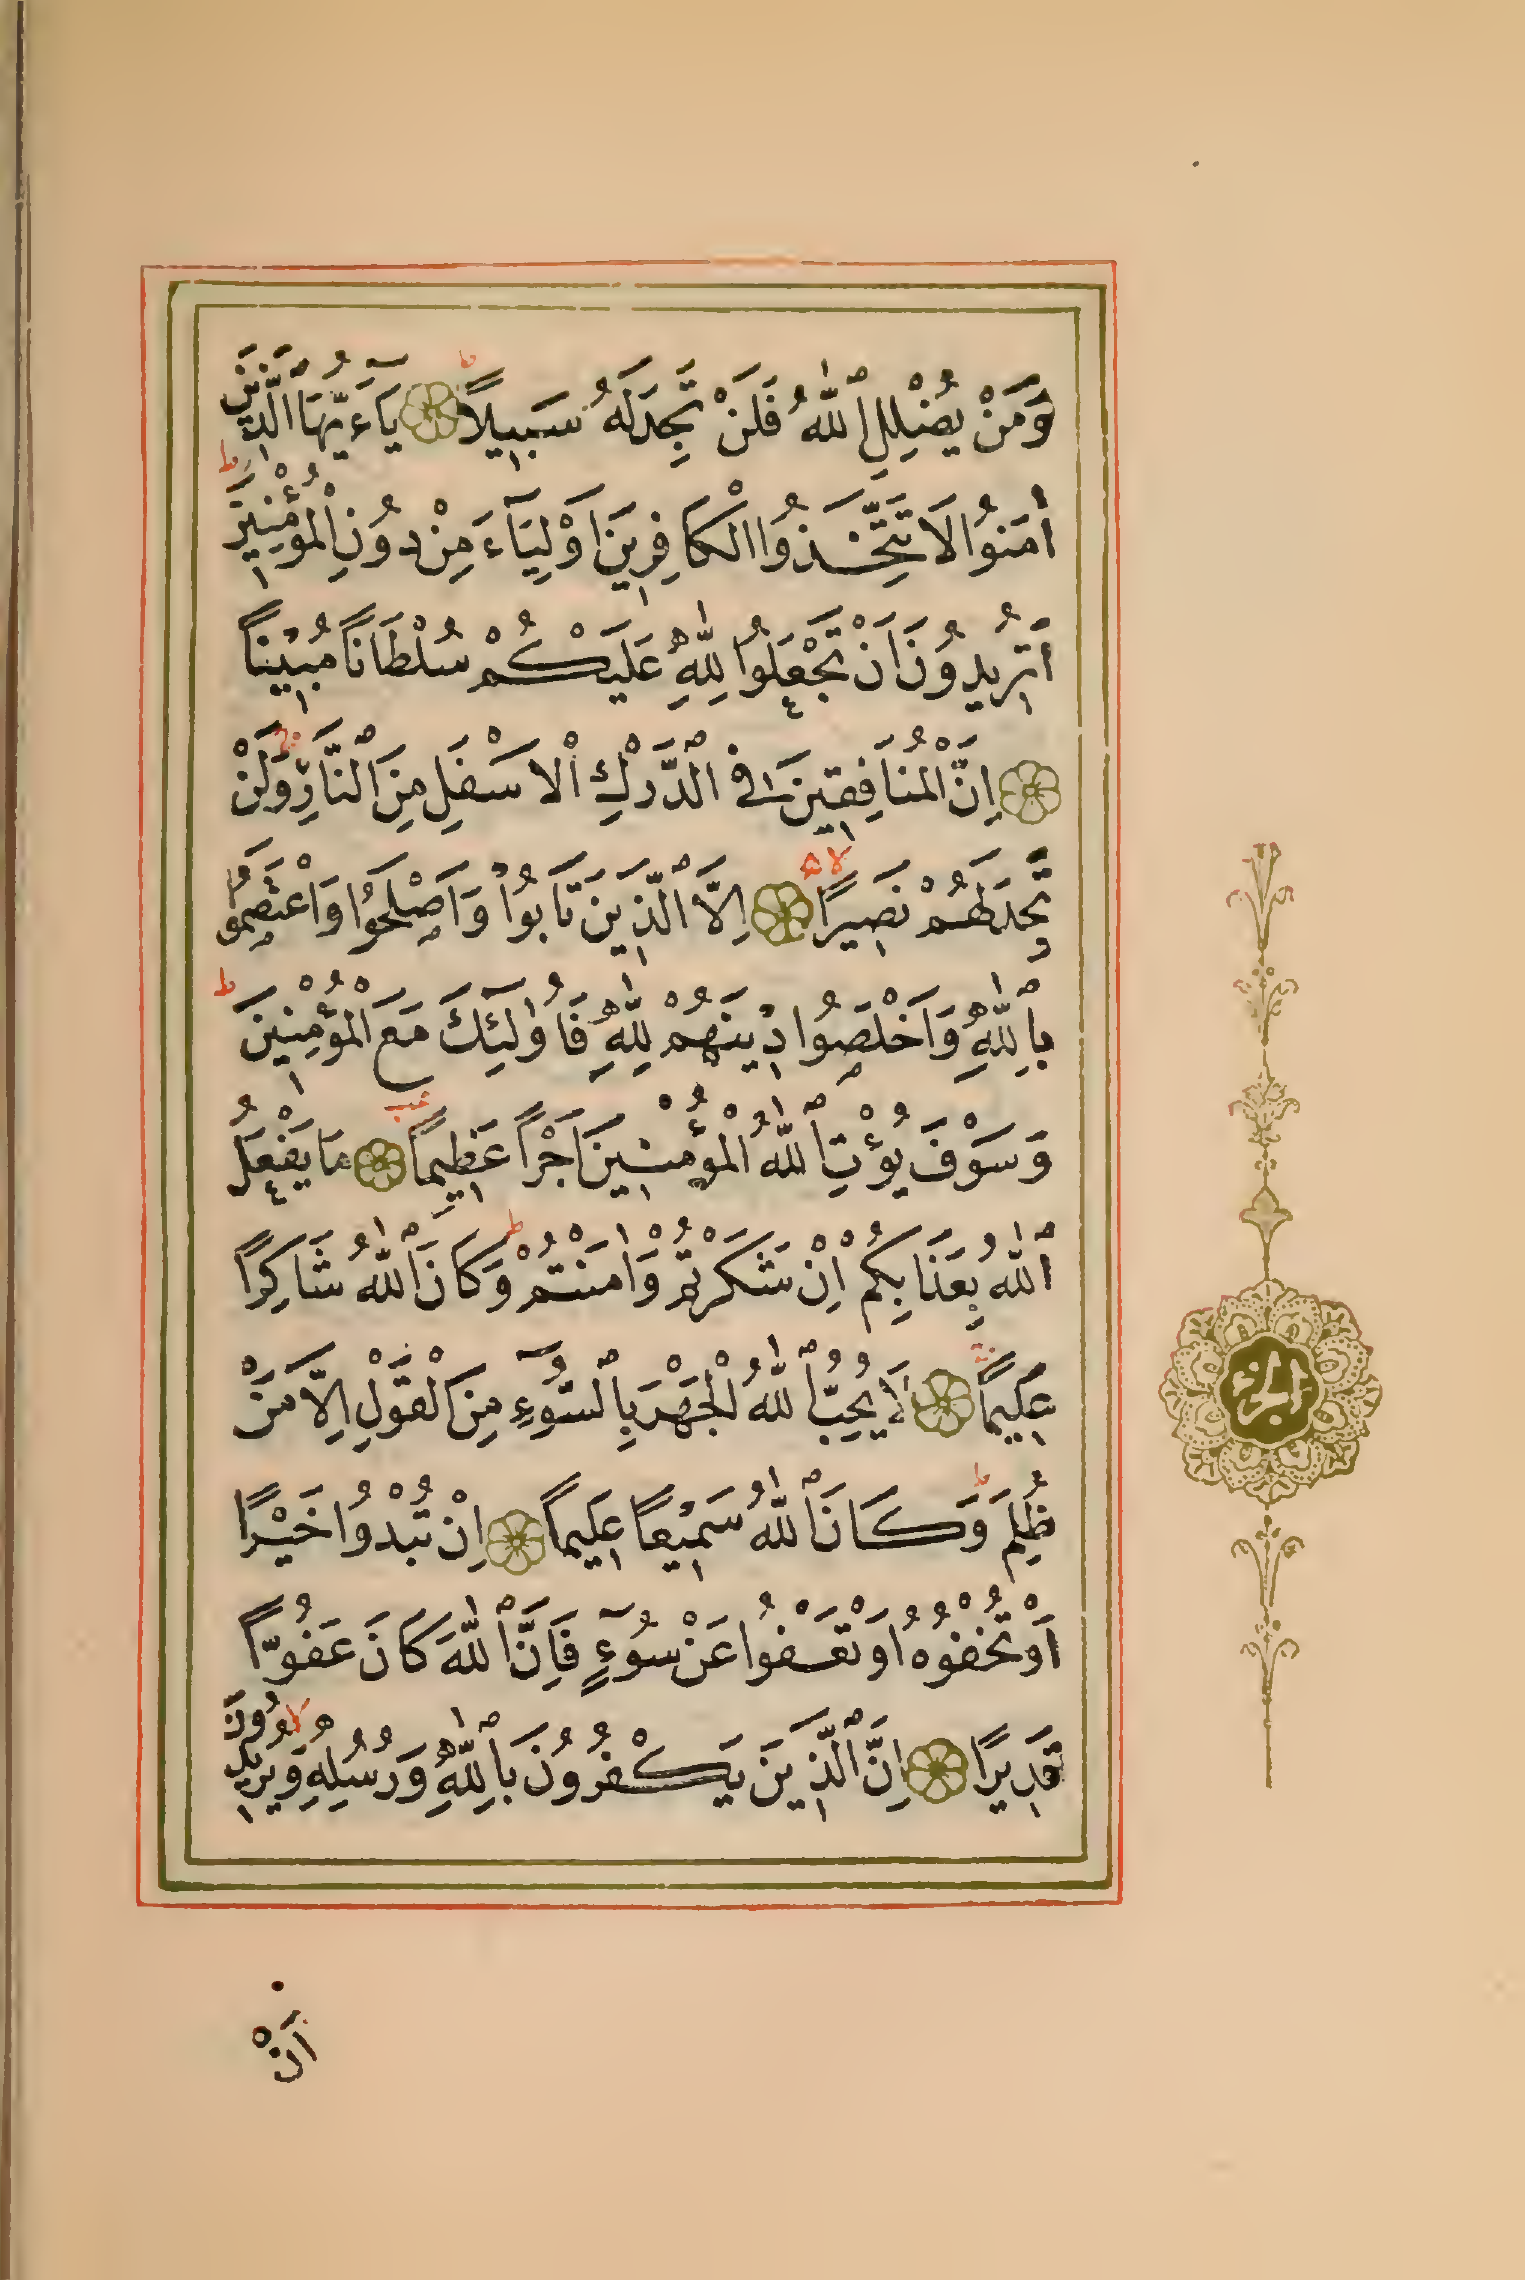 وَمَنْ يُضْلِلِ ٱللّٰهُ فَلَنْ تَجِدَ لَهُ سَبِيلًا يَٓاءَيُّهَا ٱلَّذِينَ
اٰمَنُوا لَا تَتَّخِذُوا الْكَافِرِينَ اَوْلِيَٓاءَ مِنْ دُونِ الْمُؤْمِنِينَ ط
اَتُرِيدُونَ اَنْ تَجْعَلُوا لِلّٰهِ عَلَيْكُمْ سُلْطَانًا مُبِينًا
اِنَّ الْمُنَافِقِينَ فِي ٱلدَّرْكِ الْاَسْفَلِ مِنَ ٱلنَّارِ وَلَنْ
تَجِدَ لَهُمْ نَصِيرًا لا اِلَّا ٱلَّذِينَ تَابُوا وَاَصْلَحُوا وَاعْتَصَمُوا
بِاللّٰهِ وَاَخْلَصُوا دِينَهُمْ لِلّٰهِ فَاُولٰٓئِكَ مَعَ الْمُؤْمِنِينَ ط
وَسَوْفَ يُؤْتِ ٱللّٰهُ الْمُؤْمِنِينَ اَجْرًا عَظِيمًا مَا يَفْعَلُ
ٱللّٰهُ بِعَذَابِكُمْ اِنْ شَكَرْتُمْ وَاٰمَنْتُمْ ط وَكَانَ ٱللّٰهُ شَاكِرًا
عَلِيمًا لَا يُحِبُّ ٱللّٰهُ الْجَهْرَ بِالسُّٓوءِ مِنَ الْقَوْلِ اِلَّا مَنْ
ظُلِمَ ط وَكَانَ ٱللّٰهُ سَمِيعًا عَلِيمًا اِنْ تُبْدُوا خَيْرًا
اَوْ تُخْفُوهُ اَوْ تَعْفُوا عَنْ سُٓوءٍ فَاِنَّ ٱللّٰهَ كَانَ عَفُوًّا
قَدِيرًا اِنَّ ٱلَّذِينَ يَكْفُرُونَ بِاللّٰهِ وَرُسُلِهِ وَيُرِيدُونَ
اَنْ